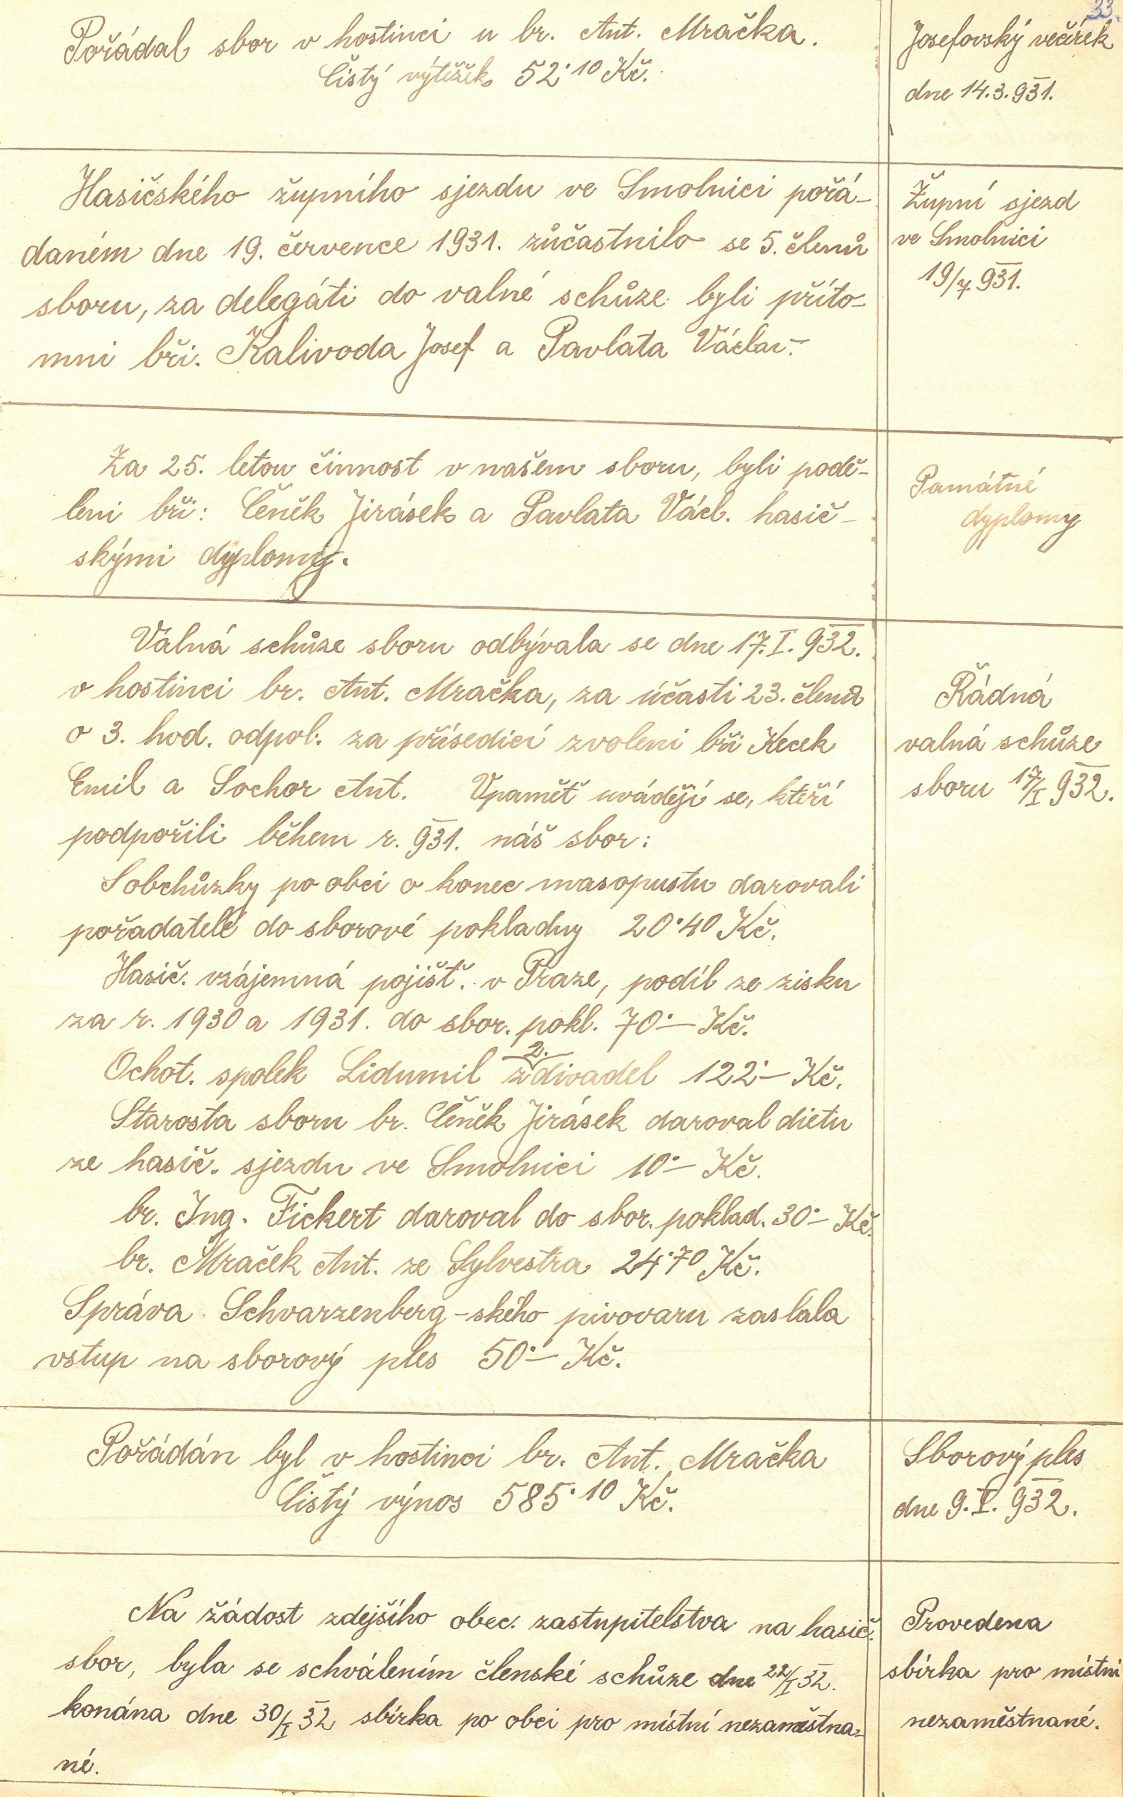 33.
Pořádal sbor v hostinci u br. Ant. Mračka.
Čistý výtěžek 52·10 Kč.
Josefovský večírek
dne 14.3.931.
Hasičského župního sjezdu ve Smolnici pořá-
daném dne 19. července 1931. zůčastnilo se 5. členů
sboru, za delegáti do valné schůze byli příto-
mni bří. Kalivoda Josef a Pavlata Václav.
Župní sjezd
ve Smolnici
19/7 931.
Za 25. letou činnost v našem sboru, byli podě-
leni bří: Čeněk Jirásek a Pavlata Václ. hasič-
skými dyplomy.
Památné
dyplomy
Valná schůze sboru odbývala se dne 17.I.932.
v hostinci br. Ant. Mračka, za účasti 23. členů
o 3. hod. odpol. za přísedící zvoleni bří Kecek
Emil a Sochor Ant. Vpamět uvádějí se, kteří
podpořili během r. 931. náš sbor:
Sobchůzky po obci o konec masopustu darovali
pořadatelé do sborové pokladny 20·40 Kč.
Hasič. vzájemná pojišť. v Praze, podíl ze zisku
za r. 1930 a 1931. do sbor. pokl. 70·– Kč.
Ochot. spolek Lidumil z 2. divadel 122·– Kč.
Starosta sboru br. Čeněk Jirásek daroval dietu
ze hasič. sjezdu ve Smolnici 10·– Kč.
br. Ing. Fickert daroval do sbor. poklad. 30·– Kč.
br. Mraček Ant. ze Sylvestra 24·70 Kč.
Správa Schvarzenberg-ského pivovaru zaslala
vstup na sborový ples 50·– Kč.
Řádná
valná schůze
sboru 17/I 932.
Pořádán byl v hostinci br. Ant. Mračka
Čistý výnos 585·10 Kč.
Sborový ples
dne 9.I.932.
Na žádost zdejšího obec. zastupitelstva na hasič.
sbor, byla se schválením členské schůze dne 22/I 32.
konána dne 30/I 32 sbírka po obci pro místní nezaměstna-
né.
Provedena
sbírka pro místní
nezaměstnané.